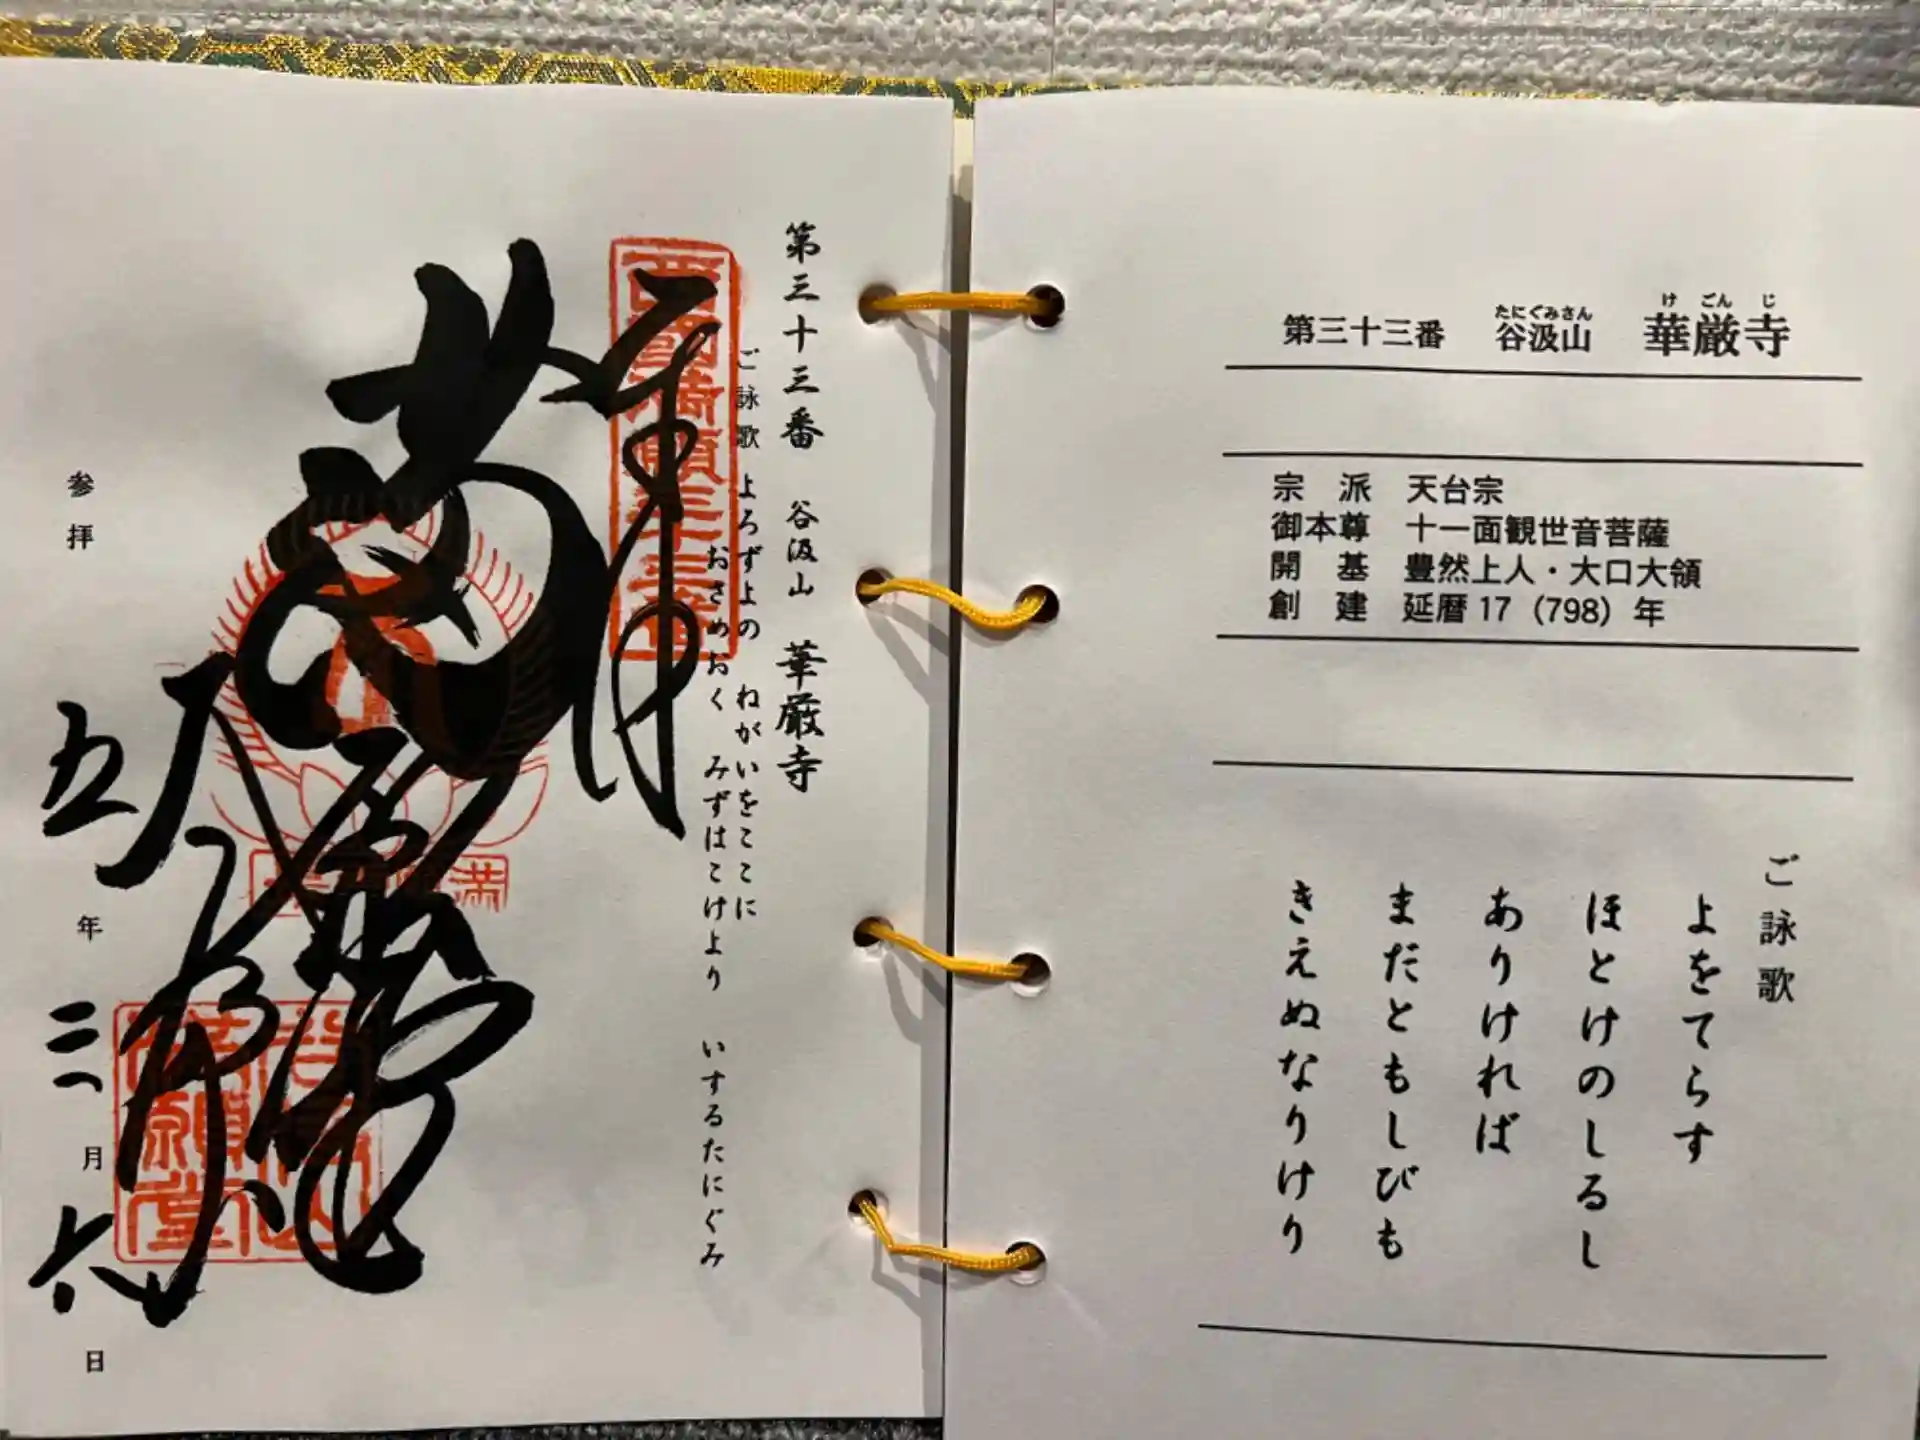 第三十三番 谷汲山 華厳寺
たにぐみさん け ごん じ
宗 派 天台宗
御本尊 十一面観世音菩薩
開 基 豊然上人・大口大領
創 建 延暦17(798)年
ご詠歌
よをてらす
ほとけのしるし
ありければ
まだともしびも
きえぬなりけり
第三十三番 谷汲山 華厳寺
ご詠歌 よろずよの ねがいをここに
おさめおく みずはこけより いするたにぐみ
西國満願三十三番
奉拝
満願堂
参拝 五年 三月 六日